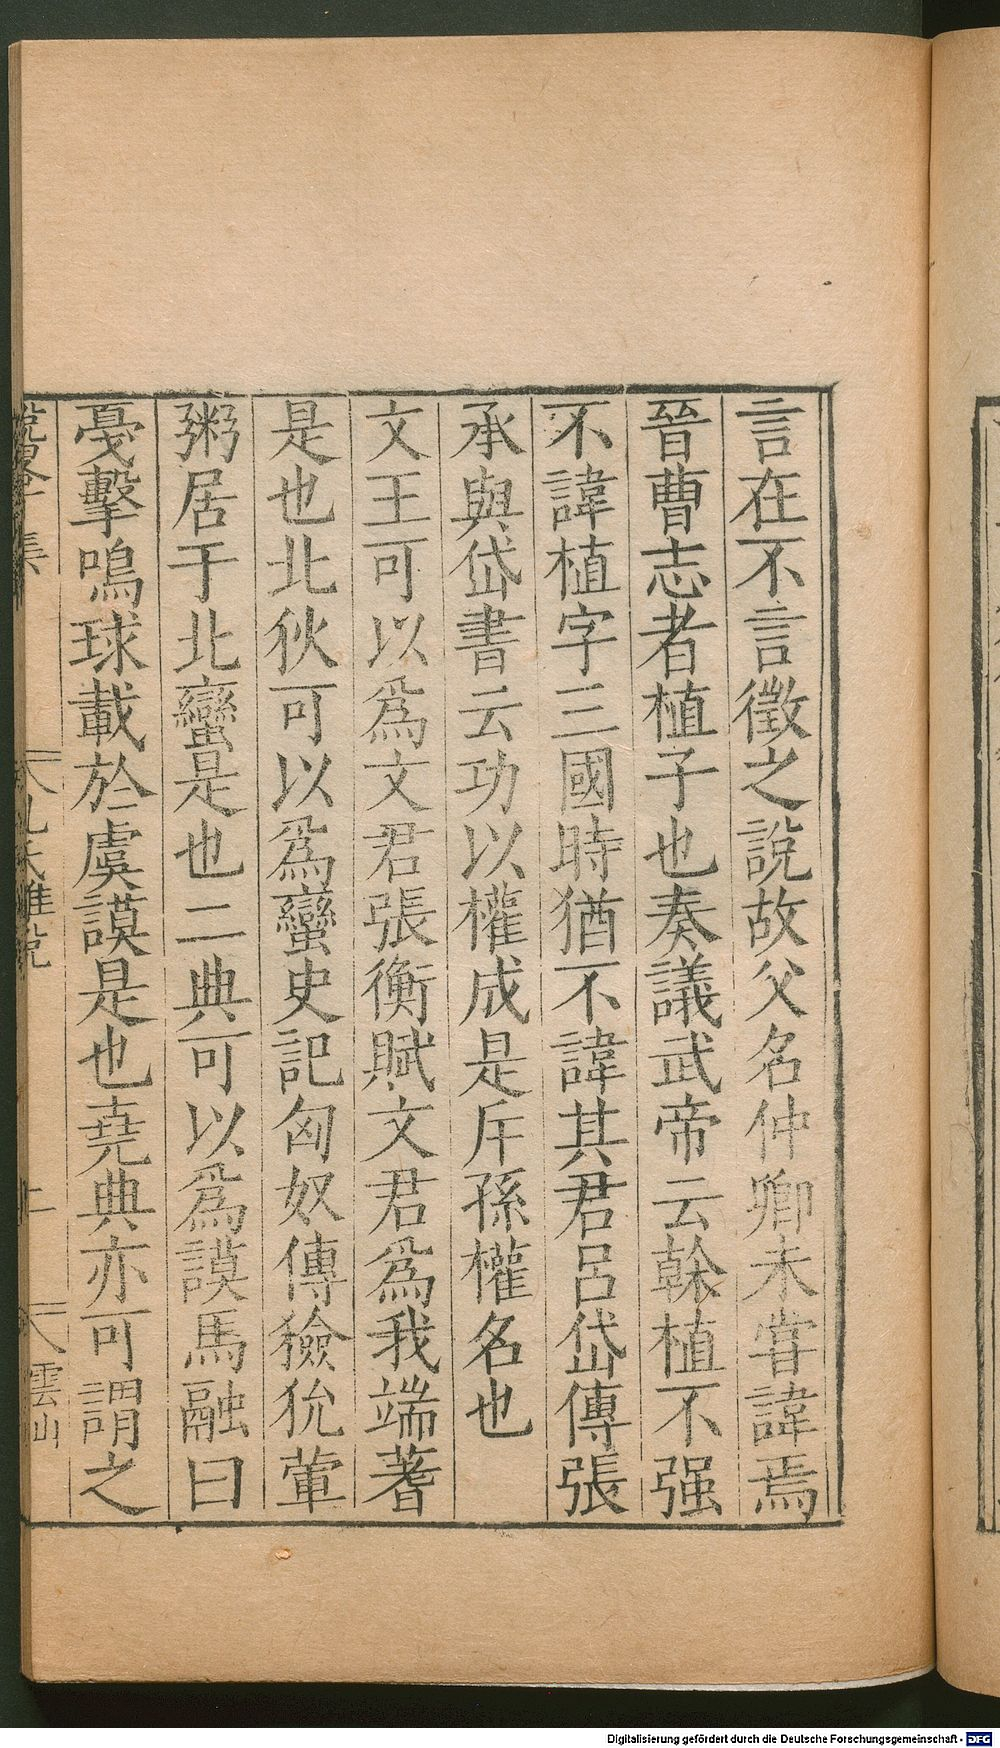 言在不言徵之說故父名仲卿未甞諱焉
晉曹志者植子也奏議武帝云榦植不强
不諱植字三國時猶不諱其君呂岱傳張
承與岱書云功以權成是斥孫權名也
文王可以爲文君張衡賦文君爲我端蓍
是也北狄可以爲蠻史記匈奴傳獫狁葷
粥居于北蠻是也二典可以爲謨馬融曰
戞擊鳴球載於虞謨是也堯典亦可謂之
雲山
Digitalisierung gefördert durch die Deutsche Forschungsgemeinschaft - DFG